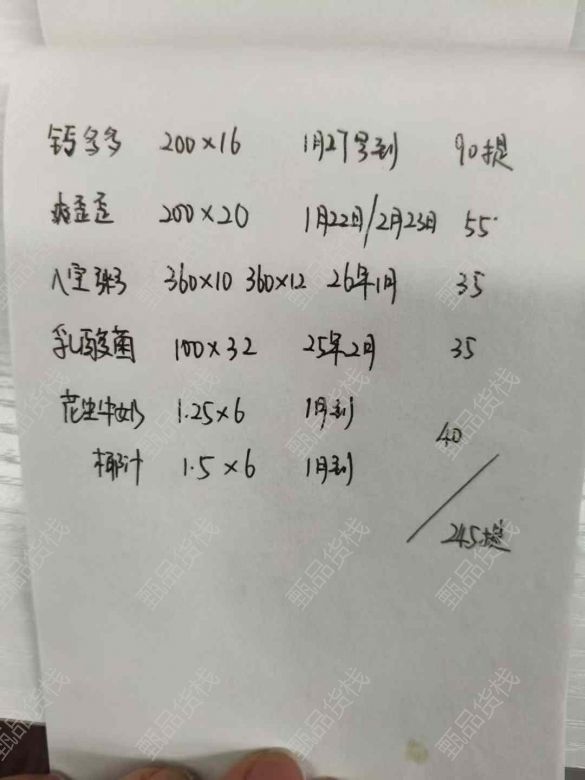 钙多多 200×16 1月27号到 90提
爽歪歪 200×20 1月22日/2月23日 55
八宝粥 360×10 360×12 26年1月 35
乳酸菌 100×32 25年2月 35
花生牛奶 1.25×6 1月到
40
椰汁 1.5×6 1月到
245提
甄品货栈